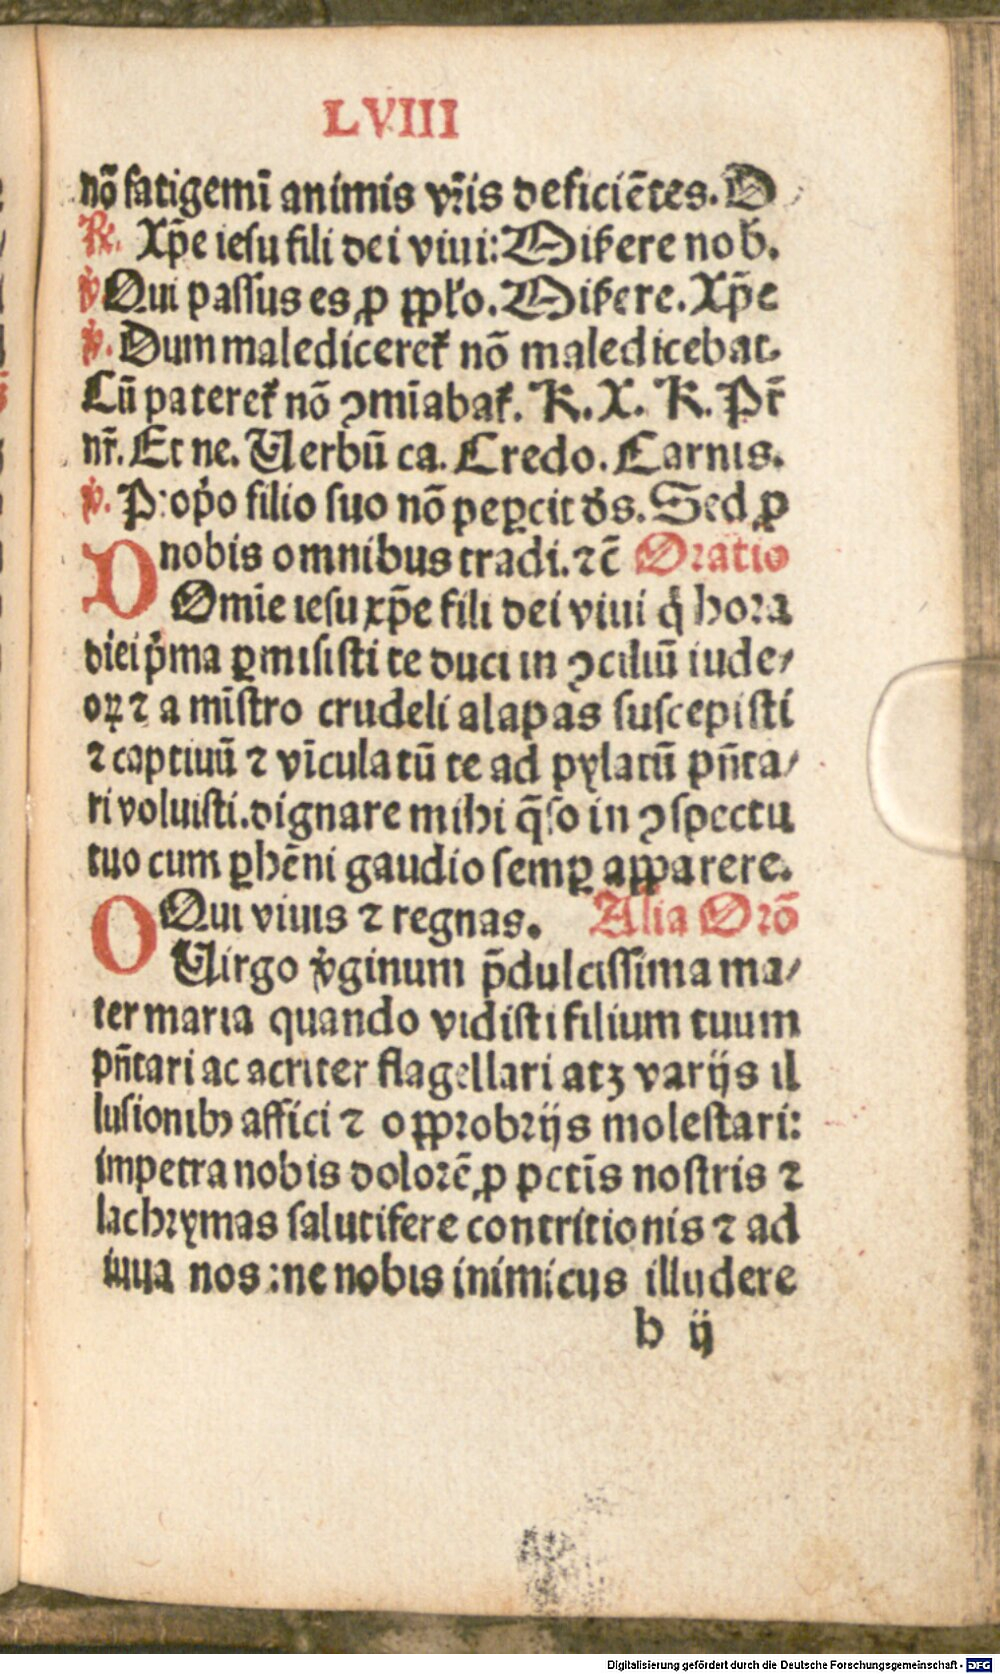 LVIII
nō fatigemī animis vr̄is deficiētes. D
R. Xp̄e iesu fili dei viui: Miẜere nob.
v̉ Qui passus es ꝓ ppl̓o. Miẜere. Xp̄e
v̉. Dum maledicereẜ nō maledicebat.
Cū patereẜ nō ꝯmīabaẜ. K. X. K. Pr̄
nr̄. Et ne. Uerbū ca. Credo. Carnis.
v̉. P:op̓o filio suo nō peꝑcit d̓s. Sed ꝓ
nobis omnibus tradi. ⁊c̄ Oratio
DOmīe iesu xp̄e fili dei viui q̓ hora
diei p̓ma ꝑmisisti te duci in ꝯciliū iude/
oꝝ ⁊ a mīstro crudeli alapas suscepisti
⁊ captiuū ⁊ vīculatū te ad pylatū pn̄ta/
ri voluisti. dignare mihi q̄so in ꝯspectu
tuo cum ꝑhēni gaudio semꝑ apparere.
Qui viuis ⁊ regnas. Alia Orō
OUirgo v̓ginum p̄dulcissima ma/
ter maria quando vidisti filium tuum
pn̄tari ac acriter flagellari atꝫ varijs il
lusionibꝰ affici ⁊ opprobrijs molestari:
impetra nobis dolorē ꝓ pctīs nostris ⁊
lachrymas salutifere contritionis ⁊ ad
iuua nos: ne nobis inimicus illudere
b ij
Digitalisierung gefördert durch die Deutsche Forschungsgemeinschaft - DFG